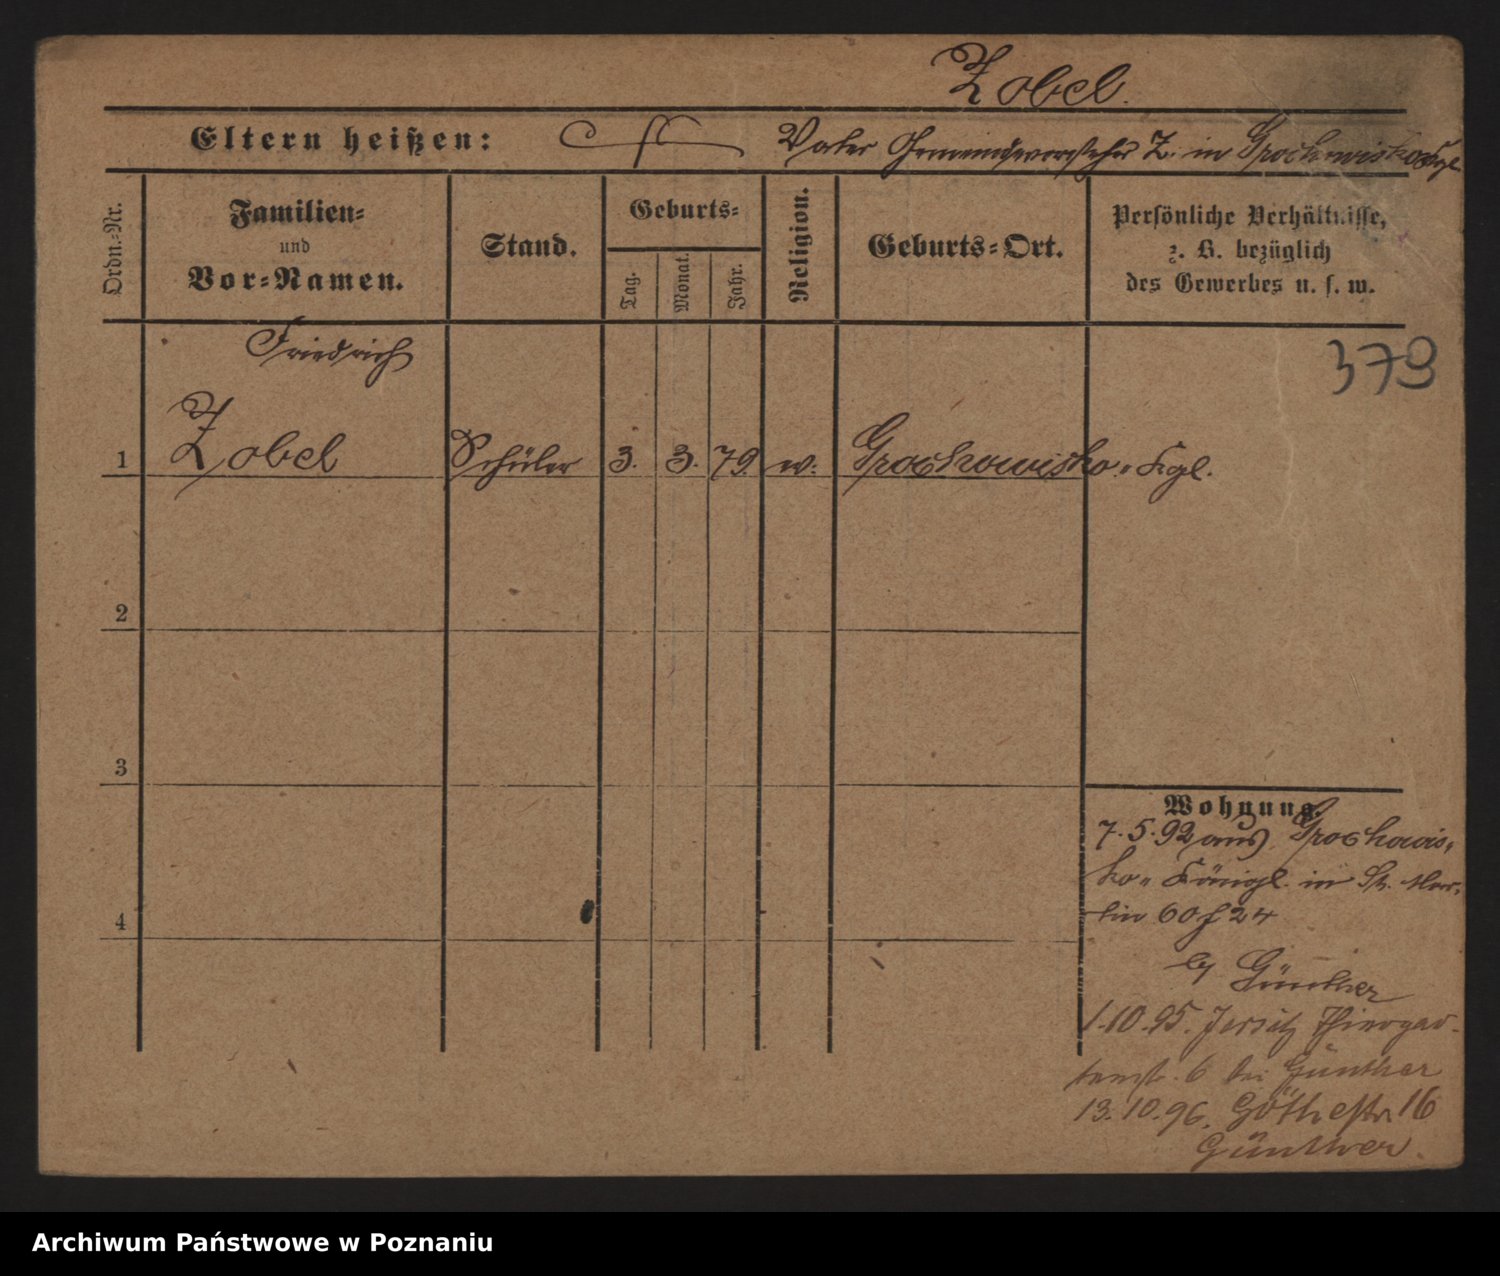 Zobel.
Eltern heißen: Vater Gemeindevorsteher Z. in Grochowisko Kgl
Ordn.-Nr.
Familien-
und
Vor-Namen.
Stand.
Geburts-
Tag.
Monat.
Jahr.
Religion.
Geburts-Ort.
Persönliche Verhältnisse,
z. B. bezüglich
des Gewerbes u. s. w.
379
Friedrich
1 Zobel Schüler 3. 3. 79. ev. Grochowisko-Kgl.
2
3
4
Wohnung.
7.5.92 aus Grochowis-
ko-Königl. in St. Mar-
tin 60 f 24
Günther
1.10.95. Jersitz Thiergar-
tenstr. 6 bei Günther
13.10.96. Göthestr. 16
Günther.
Archiwum Państwowe w Poznaniu